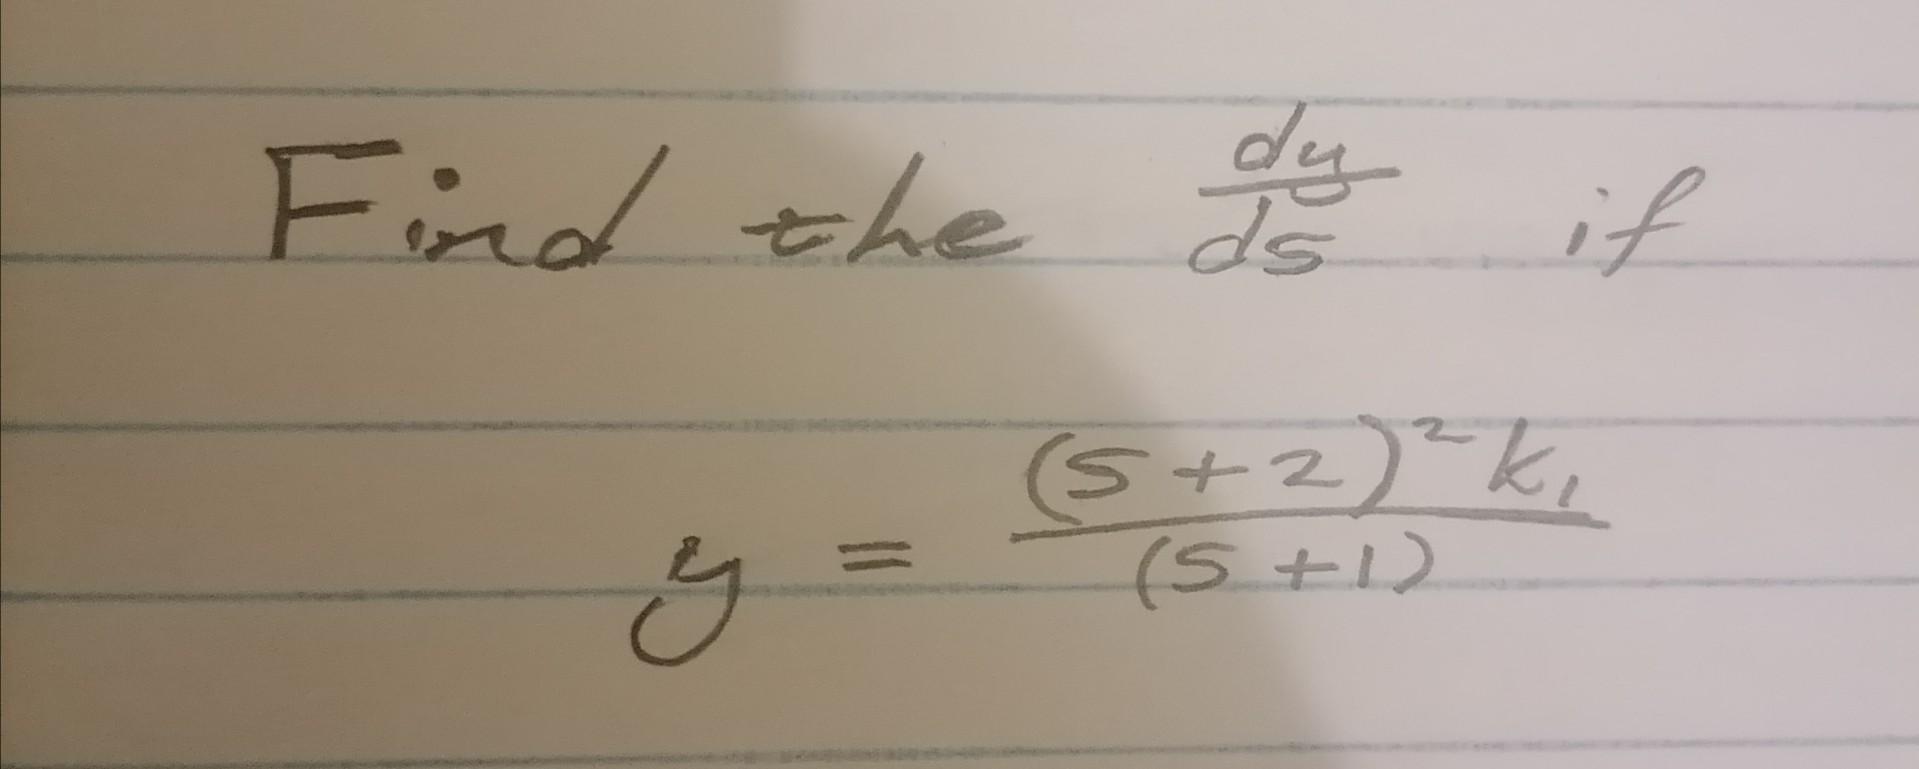 Find the dy/ds if
y = (s+2)² k₁ / (s+1)